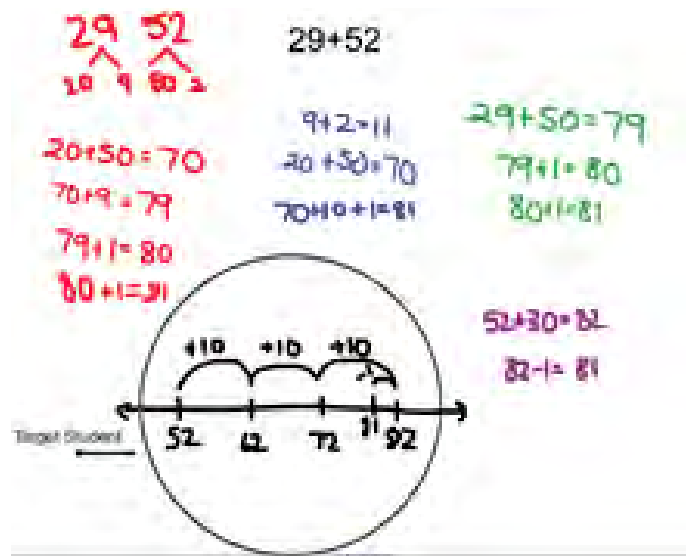 29 52
20 9 50 2
29+52
20+50=70
70+9=79
79+1=80
80+1=81
9+2=11
20+50=70
70+10+1=81
29+50=79
79+1=80
80+1=81
52+30=82
82-1=81
+10 +10 +10
52 62 72 81 82
Target Student